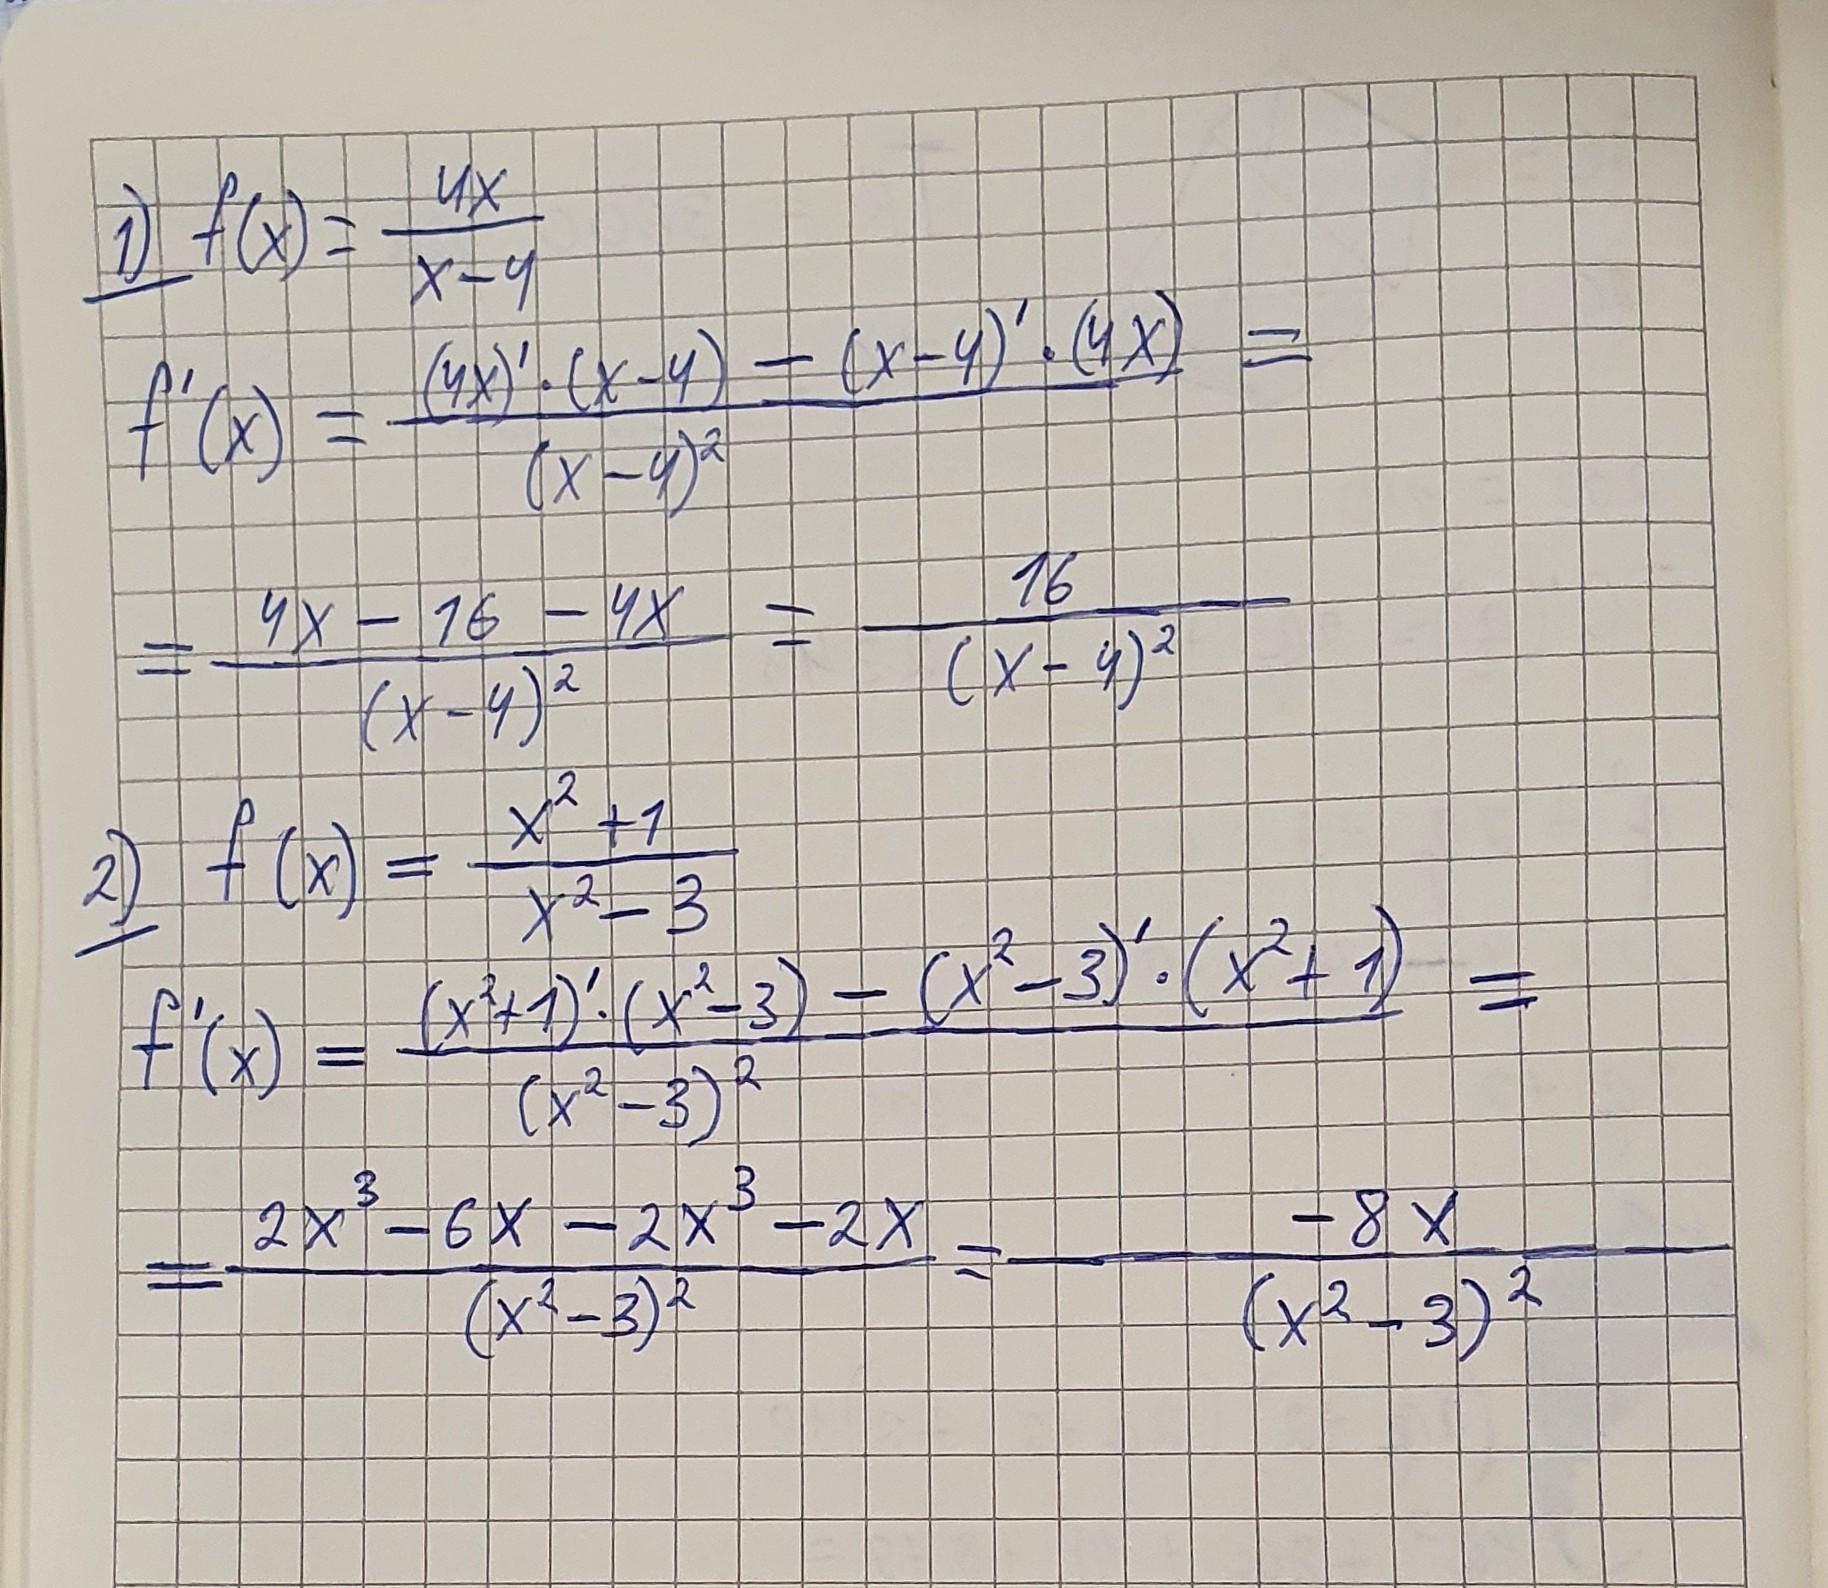 1) f(x) = 4x / x-4
f'(x) = (4x)'·(x-4) - (x-4)'·(4x) / (x-4)² =
= 4x - 16 - 4x / (x-4)² = 16 / (x-4)²
2) f(x) = x² +1 / x² - 3
f'(x) = (x²+1)'·(x²-3) - (x²-3)'·(x²+1) / (x²-3)² =
= 2x³ - 6x - 2x³ - 2x / (x²-3)² = -8x / (x²-3)²